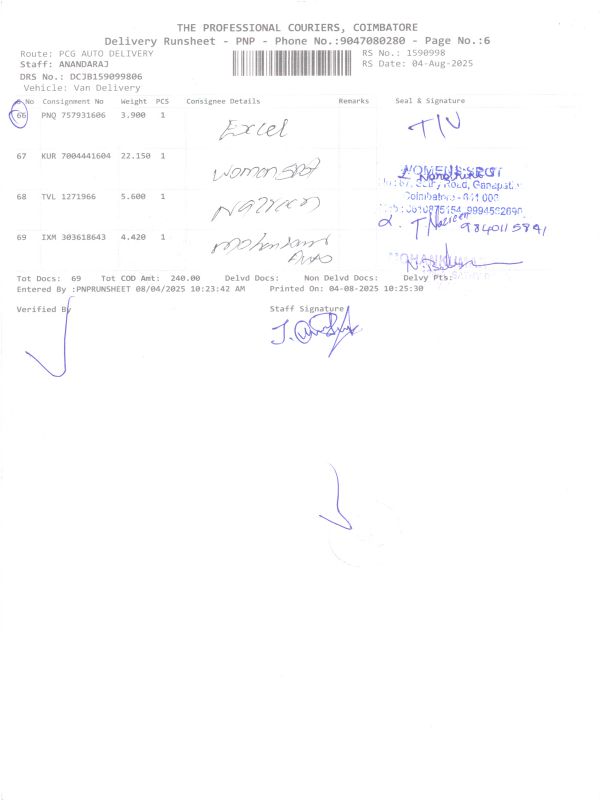 THE PROFESSIONAL COURIERS, COIMBATORE
Delivery Runsheet - PNP - Phone No.:9047080280 - Page No.:6
Route: PCG AUTO DELIVERY RS No.: 1590998
Staff: ANANDARAJ RS Date: 04-Aug-2025
DRS No.: DCJB159099806
Vehicle: Van Delivery
S No Consignment No Weight PCS Consignee Details Remarks Seal & Signature
66 PNQ 757931606 3.900 1 Excel
67 KUR 7004441604 22.150 1 Womenspot
68 TVL 1271966 5.600 1 Nazreen
Coimbatore - 641 006
T Nazreen 9840115841
69 IXM 303618643 4.420 1 Mohankumar
Tot Docs: 69 Tot COD Amt: 240.00 Delvd Docs: Non Delvd Docs: Delvy Pts:
Entered By :PNPRUNSHEET 08/04/2025 10:23:42 AM Printed On: 04-08-2025 10:25:30
Verified By Staff Signature